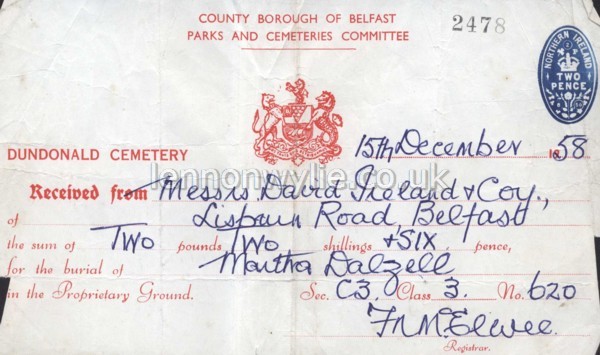 COUNTY BOROUGH OF BELFAST
PARKS AND CEMETERIES COMMITTEE
2478
NORTHERN IRELAND
TWO
PENCE
DUNDONALD CEMETERY 15th December 1958
lennonwylie.co.uk
Received from Messrs David Ireland & Coy.,
of Lisburn Road, Belfast
the sum of Two pounds Two shillings & Six pence,
for the burial of Martha Dalzell
in the Proprietary Ground. Sec. C3. Class 3. No. 620
F N McElwee.
Registrar.